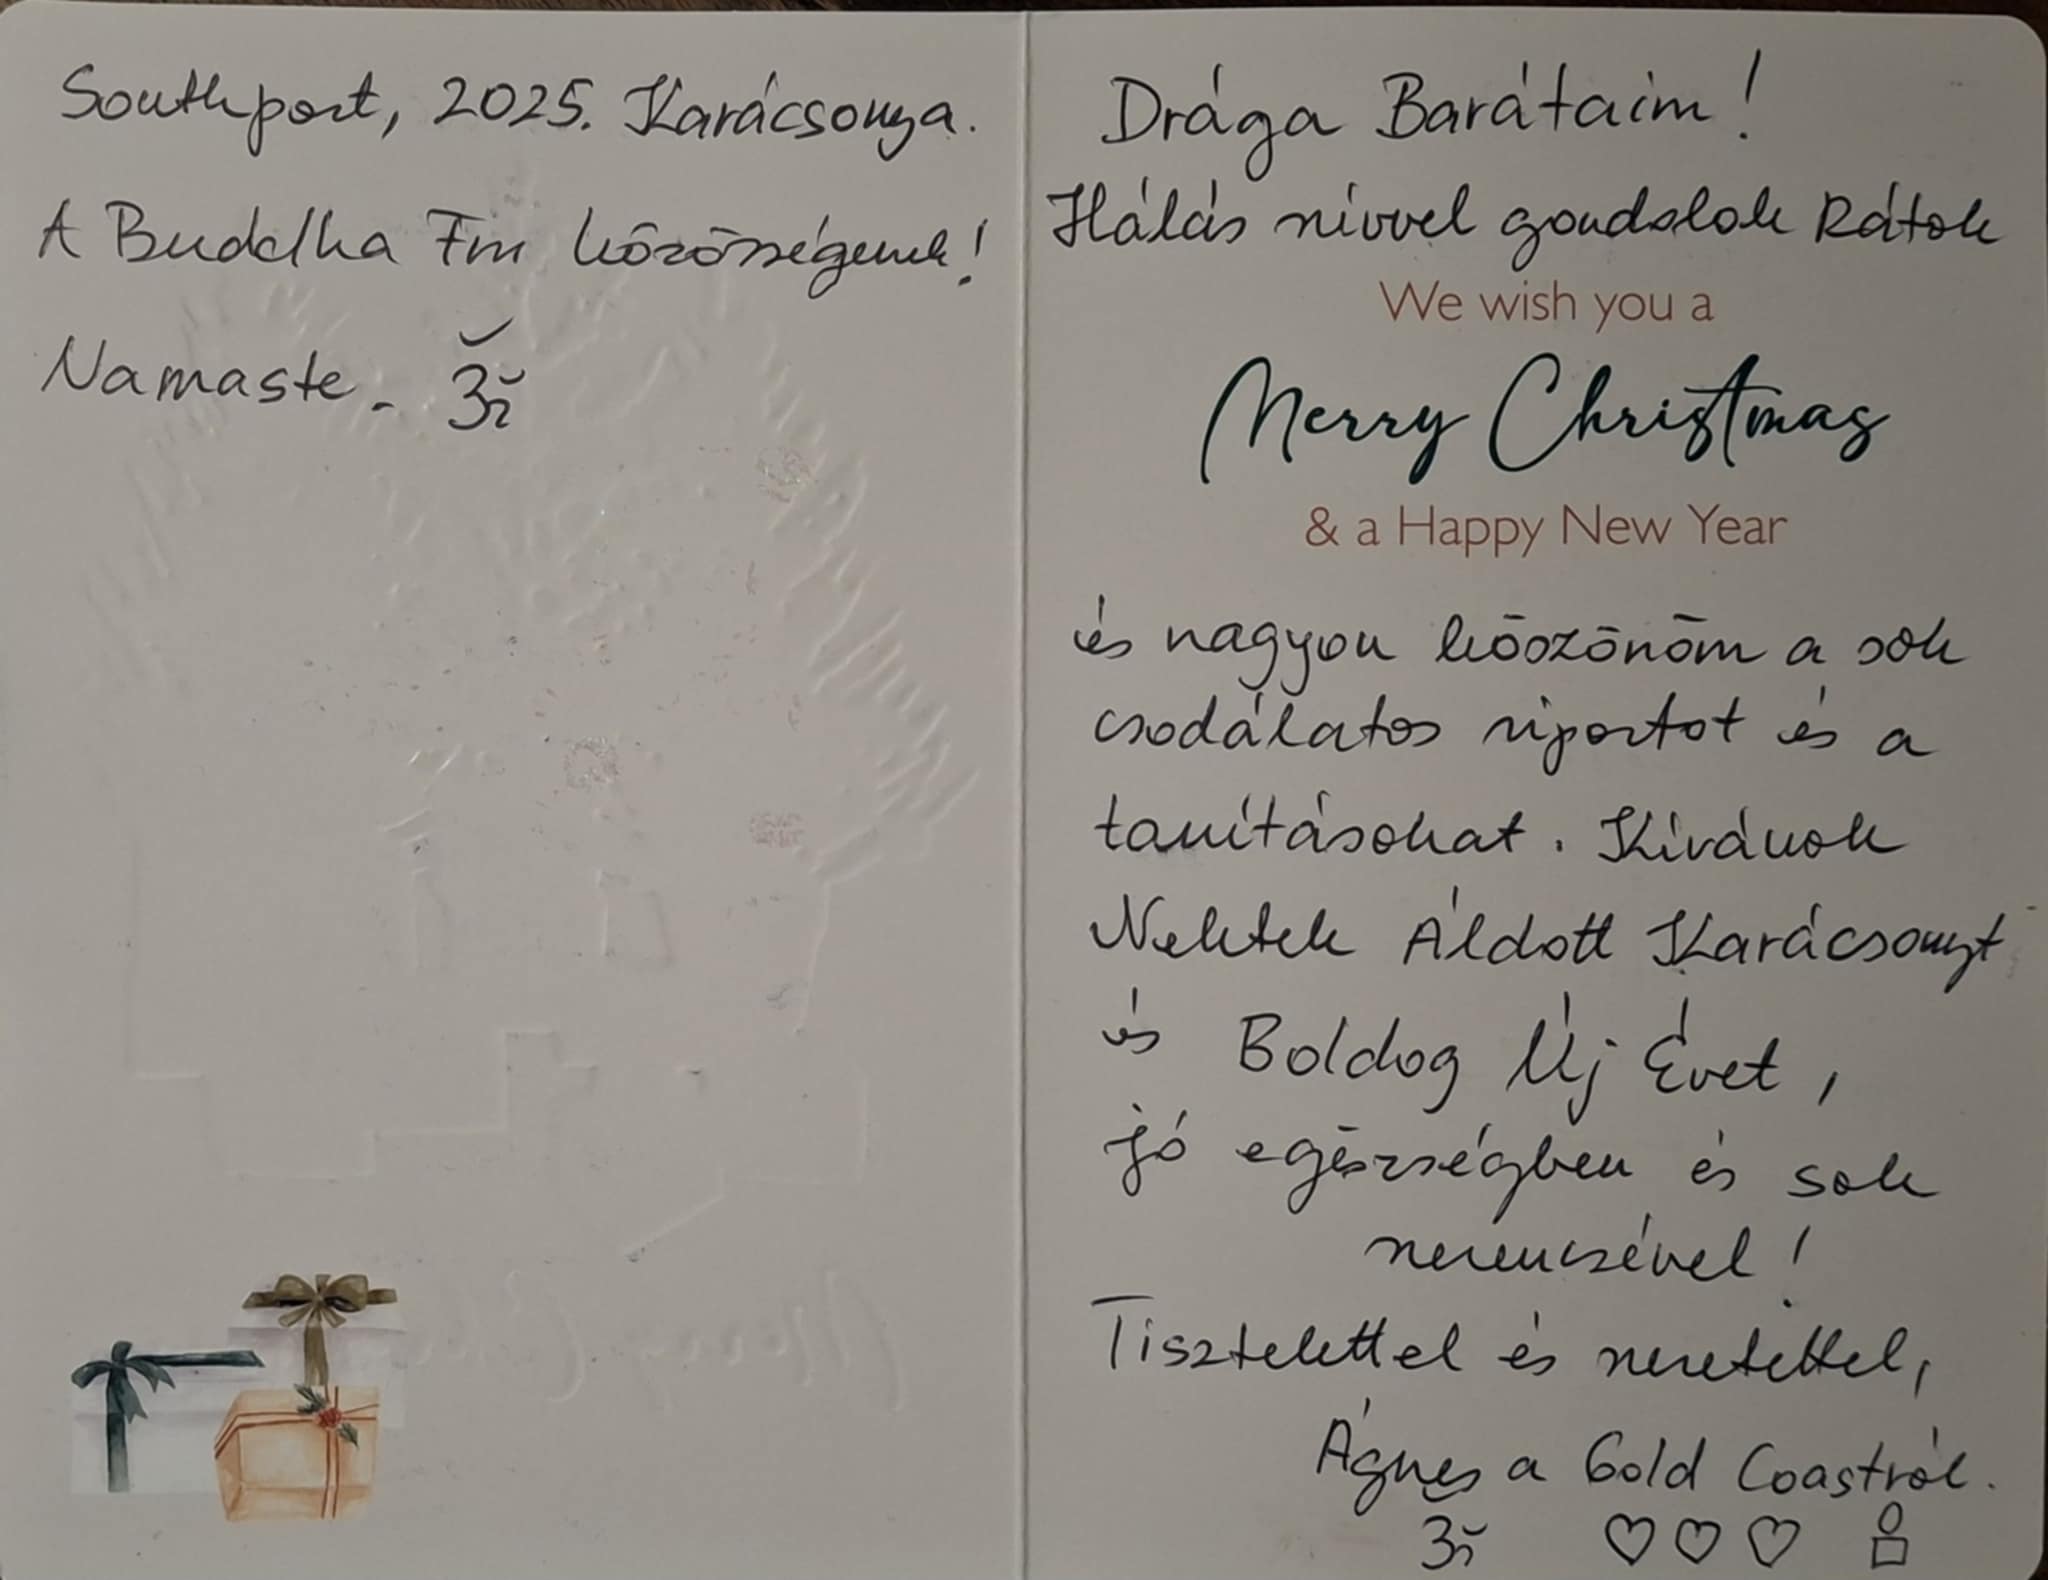 Southport, 2025. Karácsonya.
A Buddha Fm közösségének!
Namaste. ॐ
Drága Barátaim!
Hálás szívvel gondolok Rátok
We wish you a
Merry Christmas
& a Happy New Year
és nagyon köszönöm a sok
csodálatos riportot és a
tanításokat. Kívánok
Nektek Áldott Karácsonyt
és Boldog Új Évet,
jó egészségben és sok
szerencsével!
Tisztelettel és szeretettel,
Ágnes a Gold Coastról.
ॐ ♡ ♡ ♡